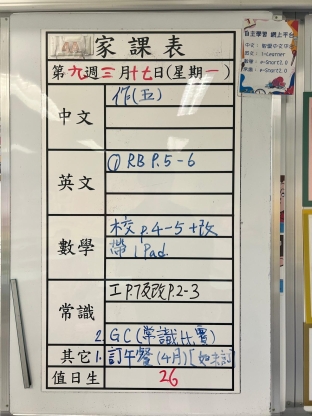 家課表
第九週三月十七日(星期一)
中文
作(五)
英文
① RB P.5-6
數學
校 p.4-5 + 改
帶 iPad
常識
工P.7及改P.2-3
2. GC (常識比賽)
其它
1. 訂午餐 (4月) [如未訂
值日生
26
自主學習 網上平台
i-Learner
e-Smart2.0
e-Smart2.0